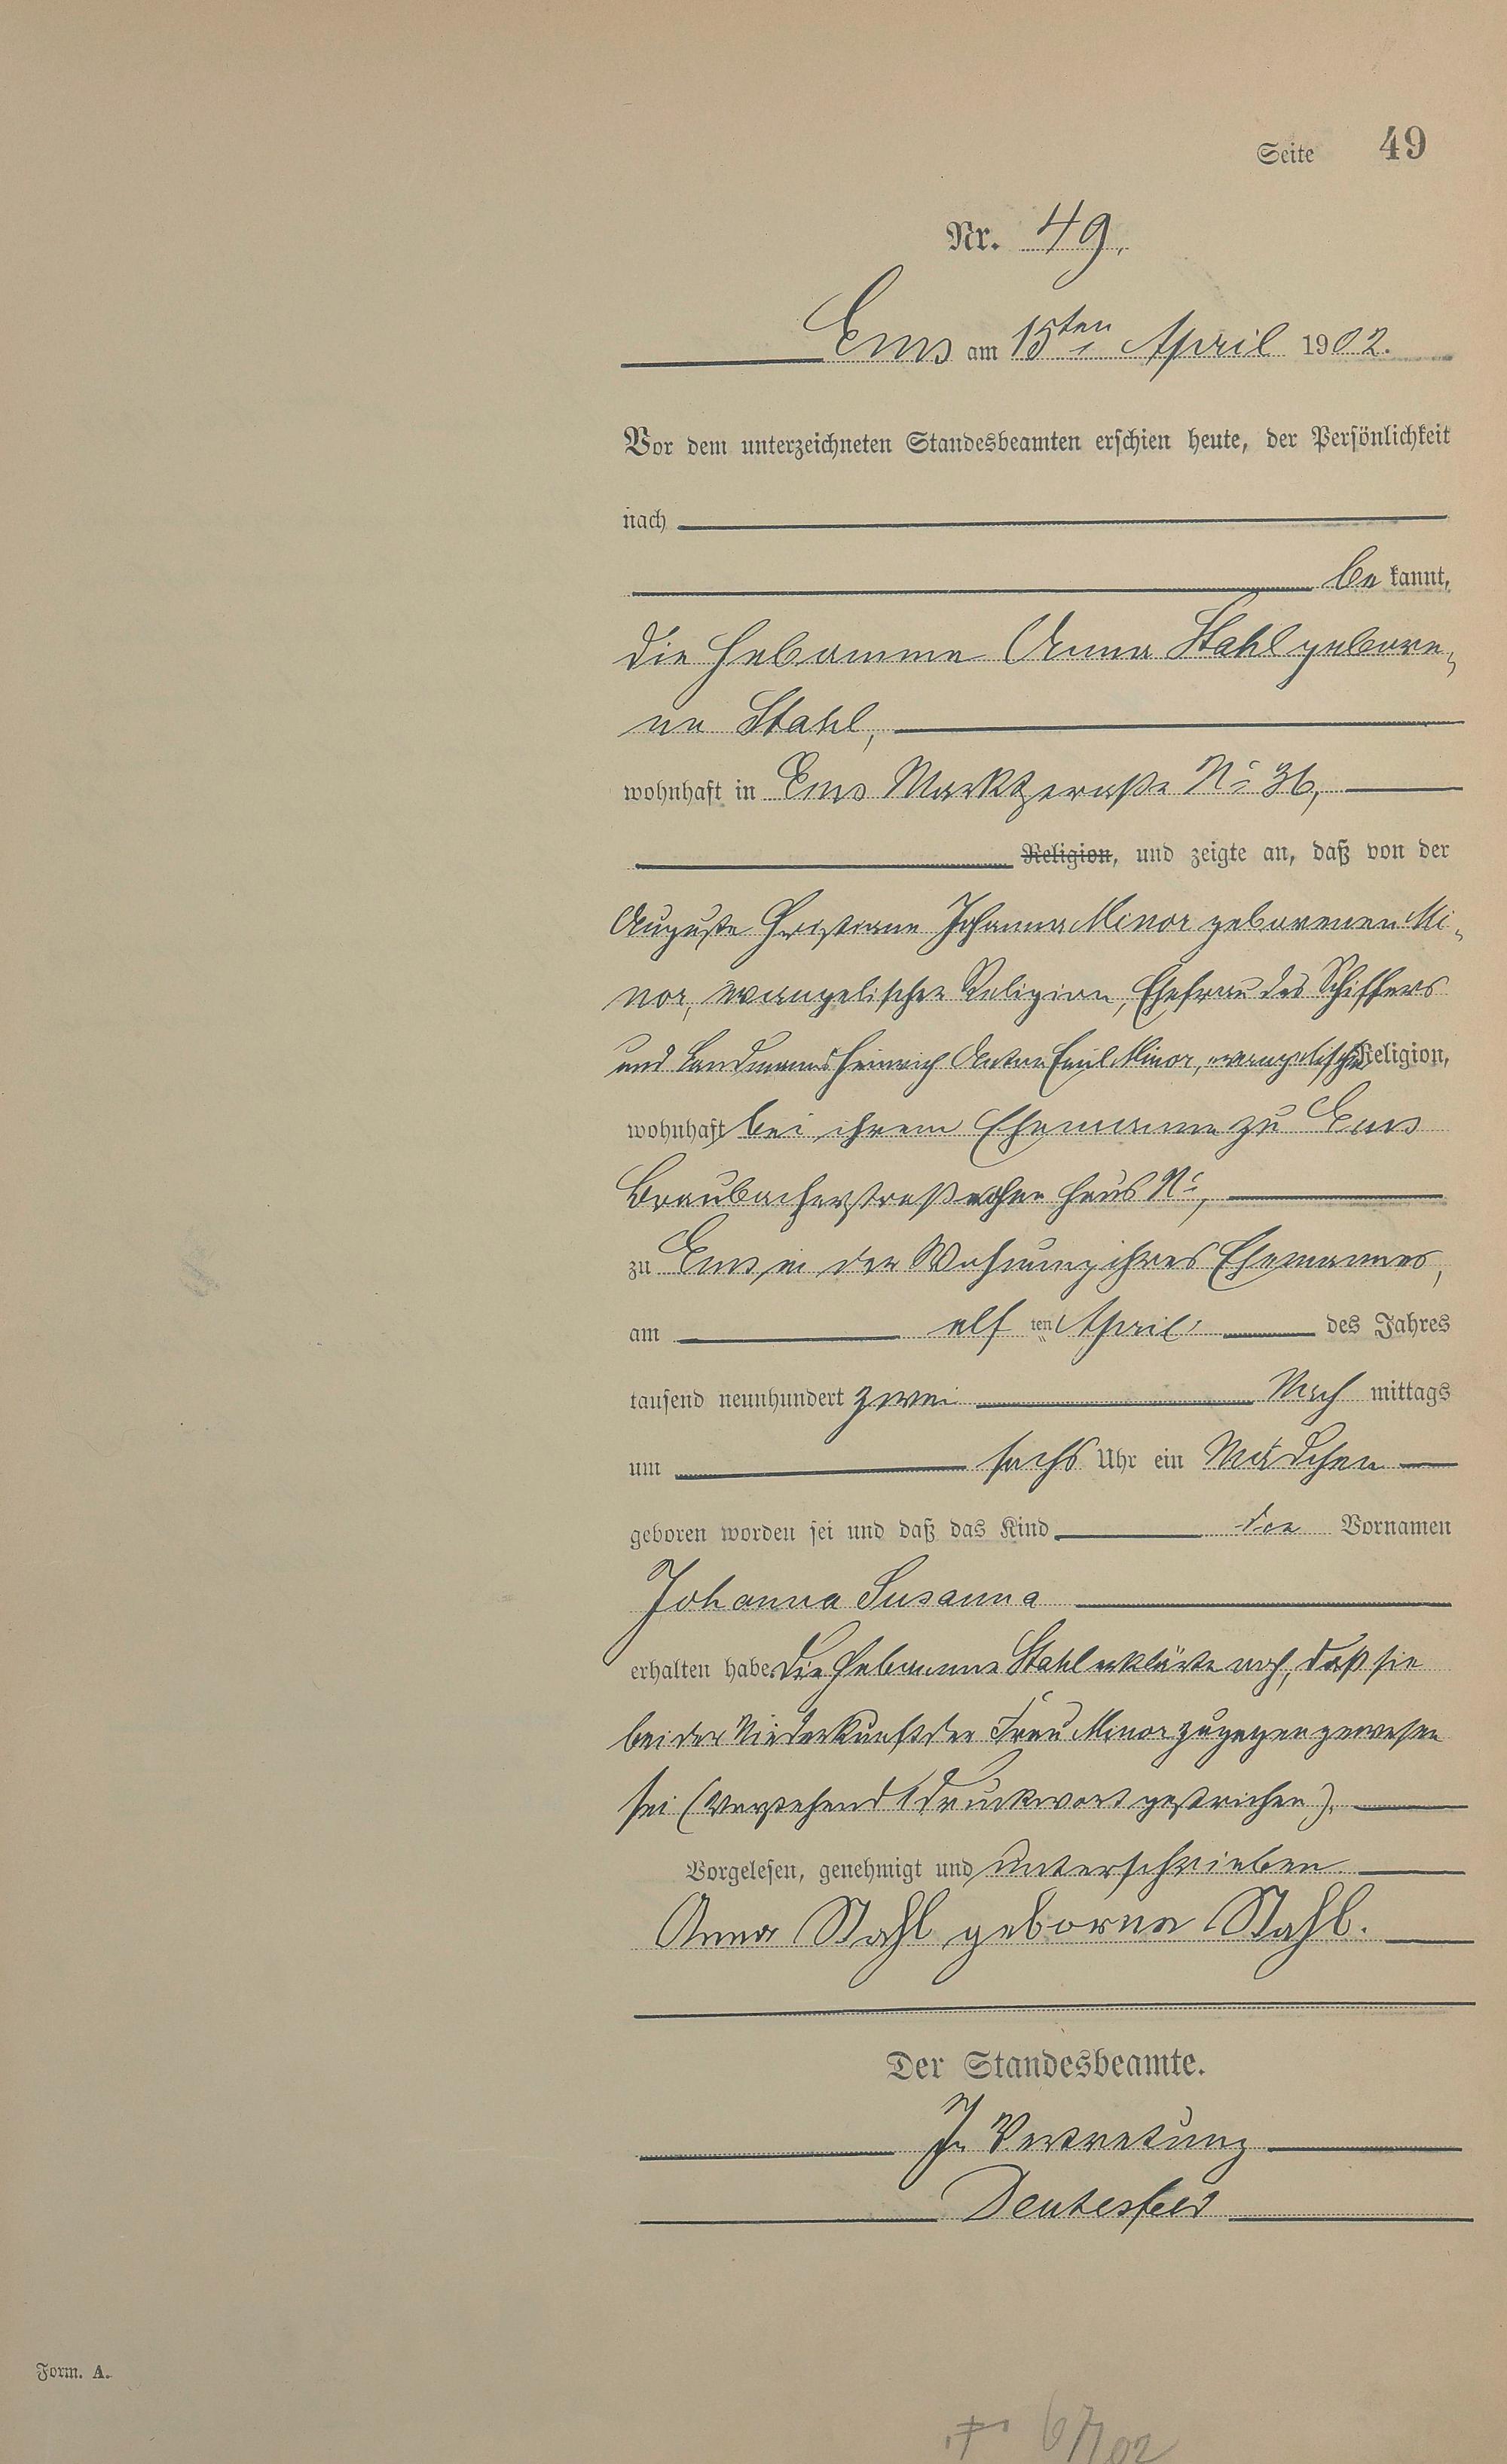 Seite 49
Nr. 49.
Ems am 15ten April 1902.
Vor dem unterzeichneten Standesbeamten erschien heute, der Persönlichkeit
nach
be kannt,
die Hebamme Anna Stahl gebore-
ne Stahl,
wohnhaft in Ems Marktstraße No 36,
Religion, und zeigte an, daß von der
Auguste Christiane Johanna Minor geborenen Mi-
nor, evangelischer Religion, Ehefrau des Schiffers
und Landmanns Heinrich Anton Emil Minor, evangelischer Religion,
wohnhaft bei ihrem Ehemanne zu Ems
Braubacherstraße ohne Haus No,
zu Ems in der Wohnung ihres Ehemannes,
am elf ten April des Jahres
tausend neunhundert zwei Nach mittags
um sechs Uhr ein Mädchen
geboren worden sei und daß das Kind die Vornamen
Johanna Susanna
erhalten habe. Die Hebamme Stahl erklärte noch, daß sie
bei der Niederkunft der Frau Minor zugegen gewesen
sei (Vorstehend 1 Druckwort gestrichen).
Vorgelesen, genehmigt und unterschrieben
Anna Stahl geborne Stahl.
Der Standesbeamte.
In Vertretung
Deutesfeld
Form. A.
67/02